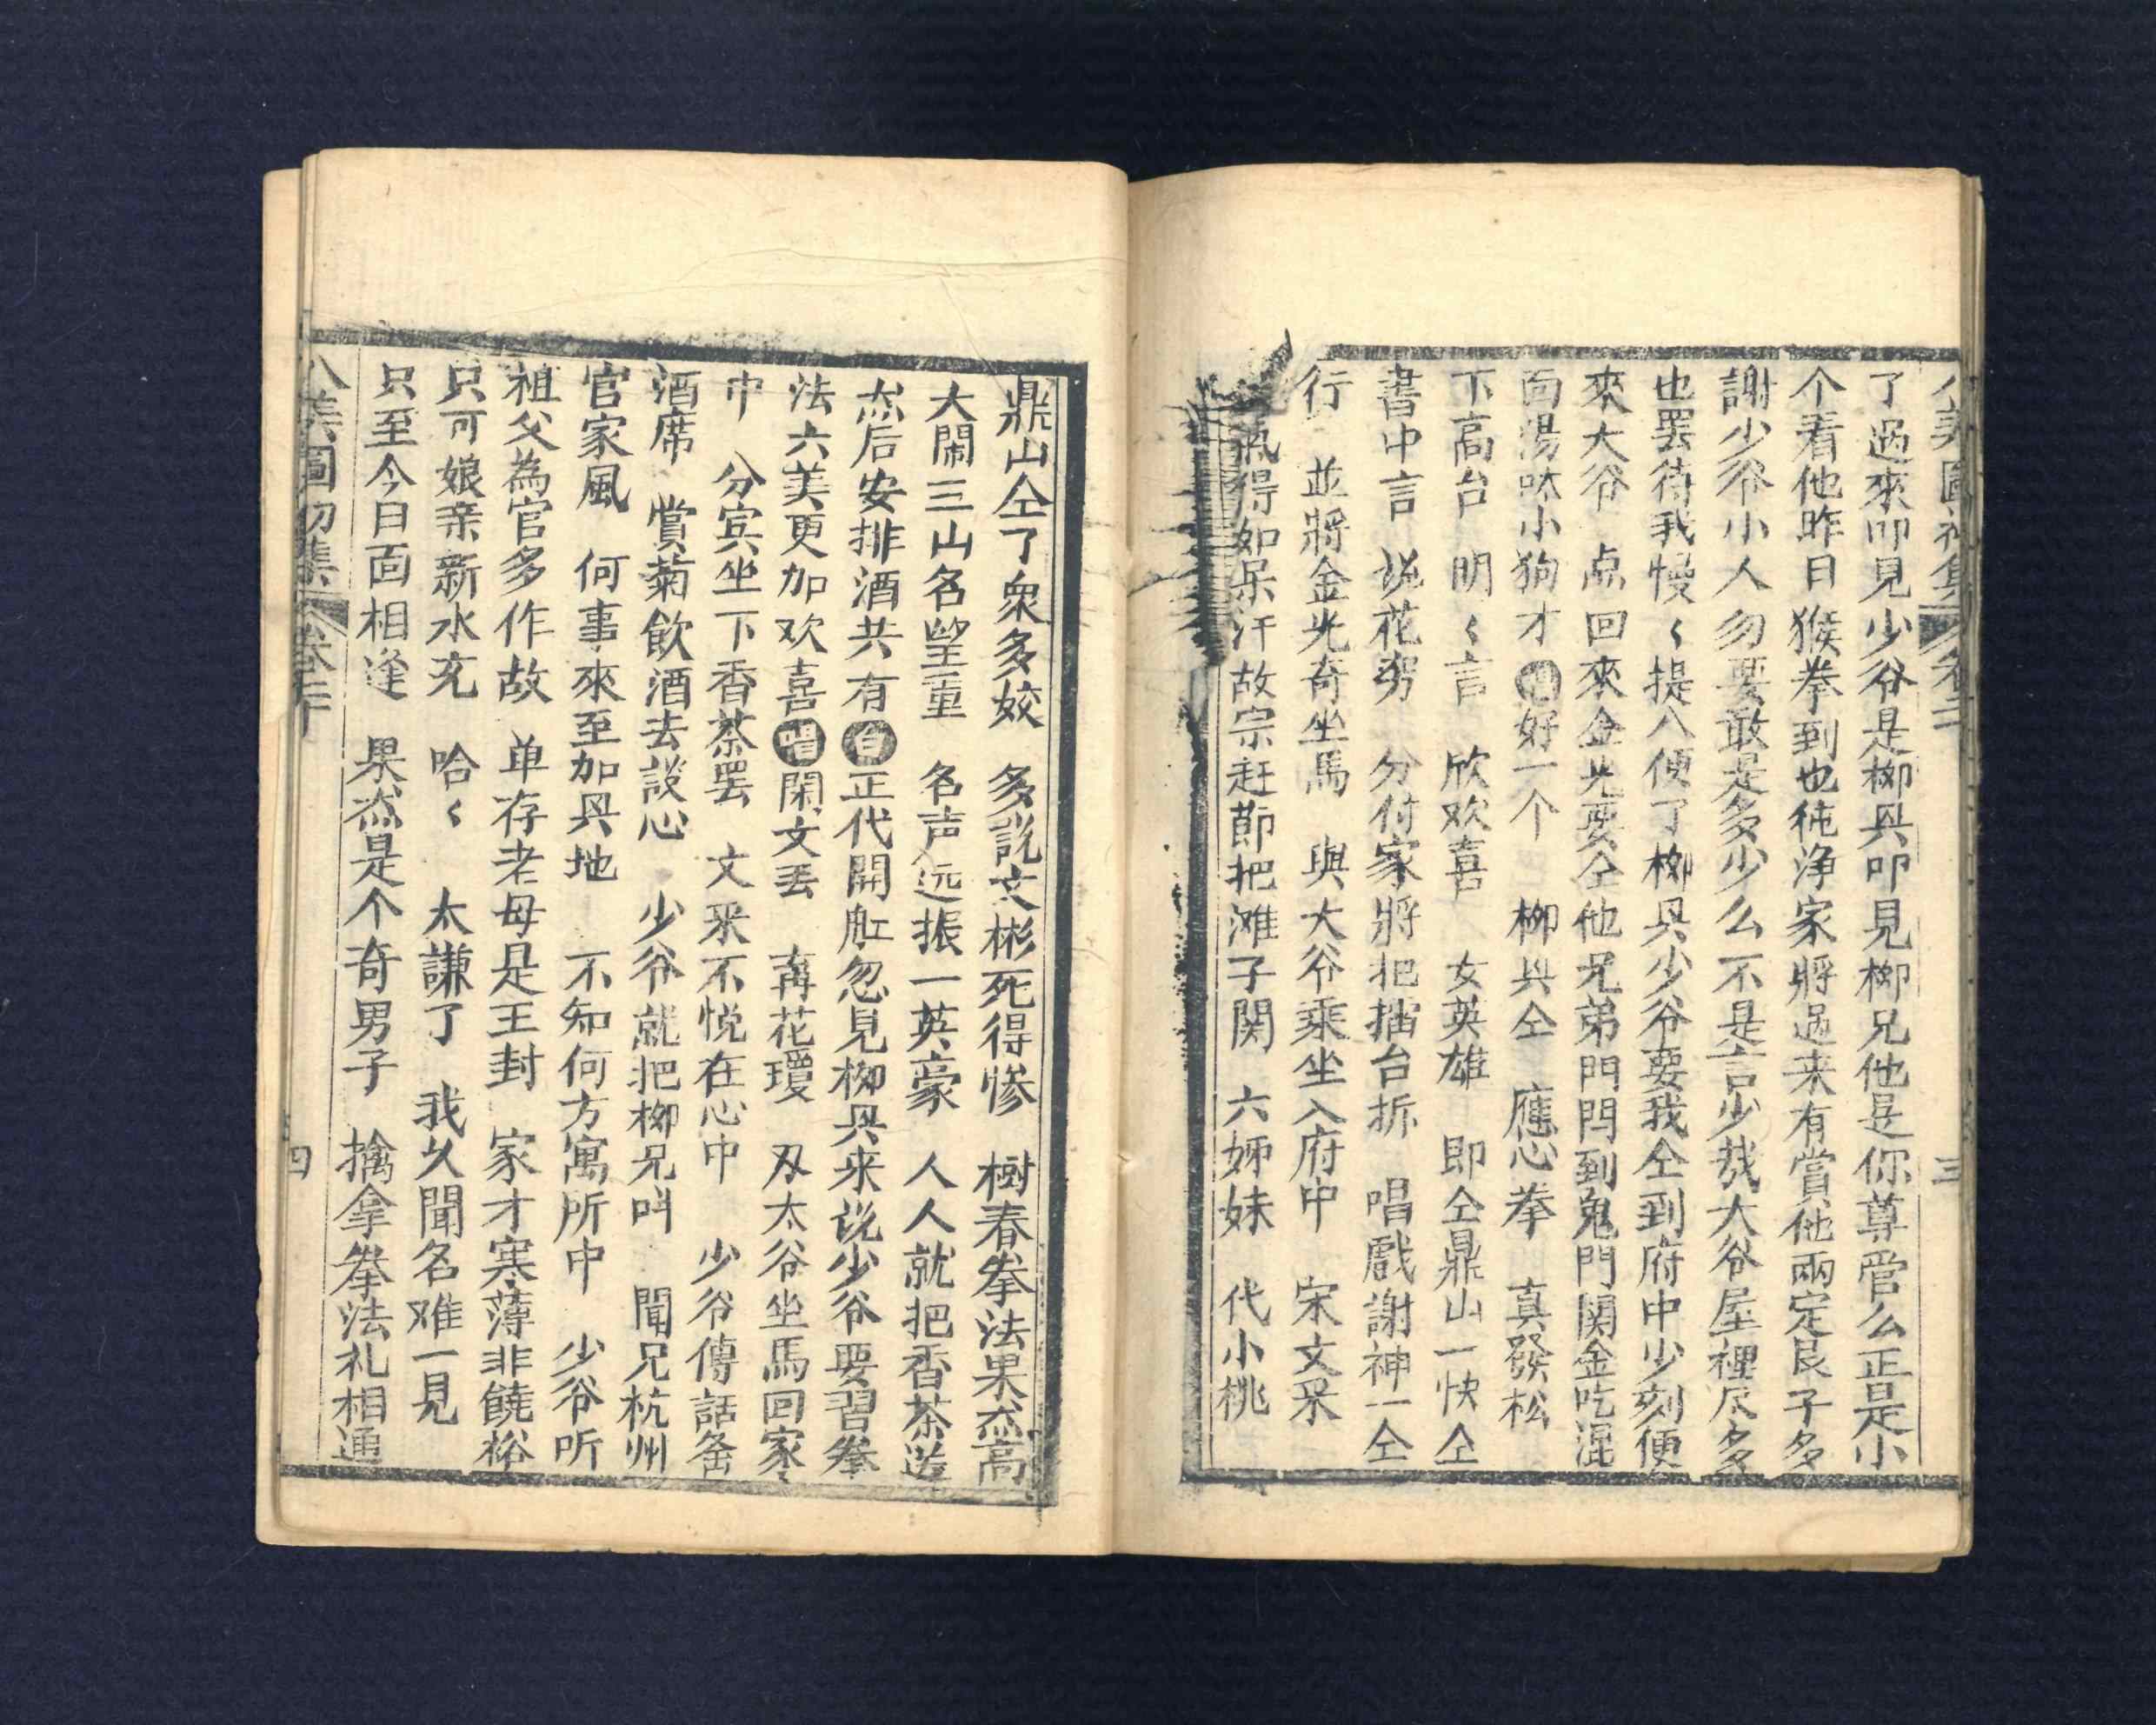 了過來叩見少爷是栁興叩見栁兄他是你尊管么正是小
个看他昨日猴拳到也純净家將過来有賞他兩定艮子多
謝少爷小人勿要敢是多少么不是言少哉大爷屋裡尽多
也罢待我慢〻提入便了栁興少爷要我仝到府中少刻便
來大爷 点回來金光要仝他兄弟門閂到鬼門関金吃混
面湯呸小狗才唱好一个 栁興仝 應心拳 真發松
下高台 明〻言 欣欢喜 女英雄 即仝鼎山一快仝
書中言 说花努 分付家將把擂台拆 唱戲謝神一仝
行 並將金光奇坐馬 與大爷乘坐入府中 宋文采
氣得如呆汗故宗赶節把滩子関 六姊妹 代小桃
鼎山仝了衆多姣 多說文彬死得慘 樹春拳法果𤇆高
大閙三山名望重 名声远振一英豪 人人就把香茶送
𤇆后安排酒共有白正代開缸忽見栁興来说少爷要習拳
法六美更加欢喜唱閑文丢 再花瓊 及太爷坐馬回家
中 分宾坐下香茶罢 文采不悦在心中 少爷傳話备
酒席 賞菊飲酒去談心 少爷就把栁兄叫 聞兄杭州
官家風 何事來至加興地 不知何方寓所中 少爷所
祖父為官多作故 单存老母是王封 家才寒薄非饒裕
只可娘亲新水充 哈〻 太謙了 我久聞名难一見
只至今日面相逢 果𤇆是个奇男子 擒拿拳法礼相通
八美圖初集 卷二 四